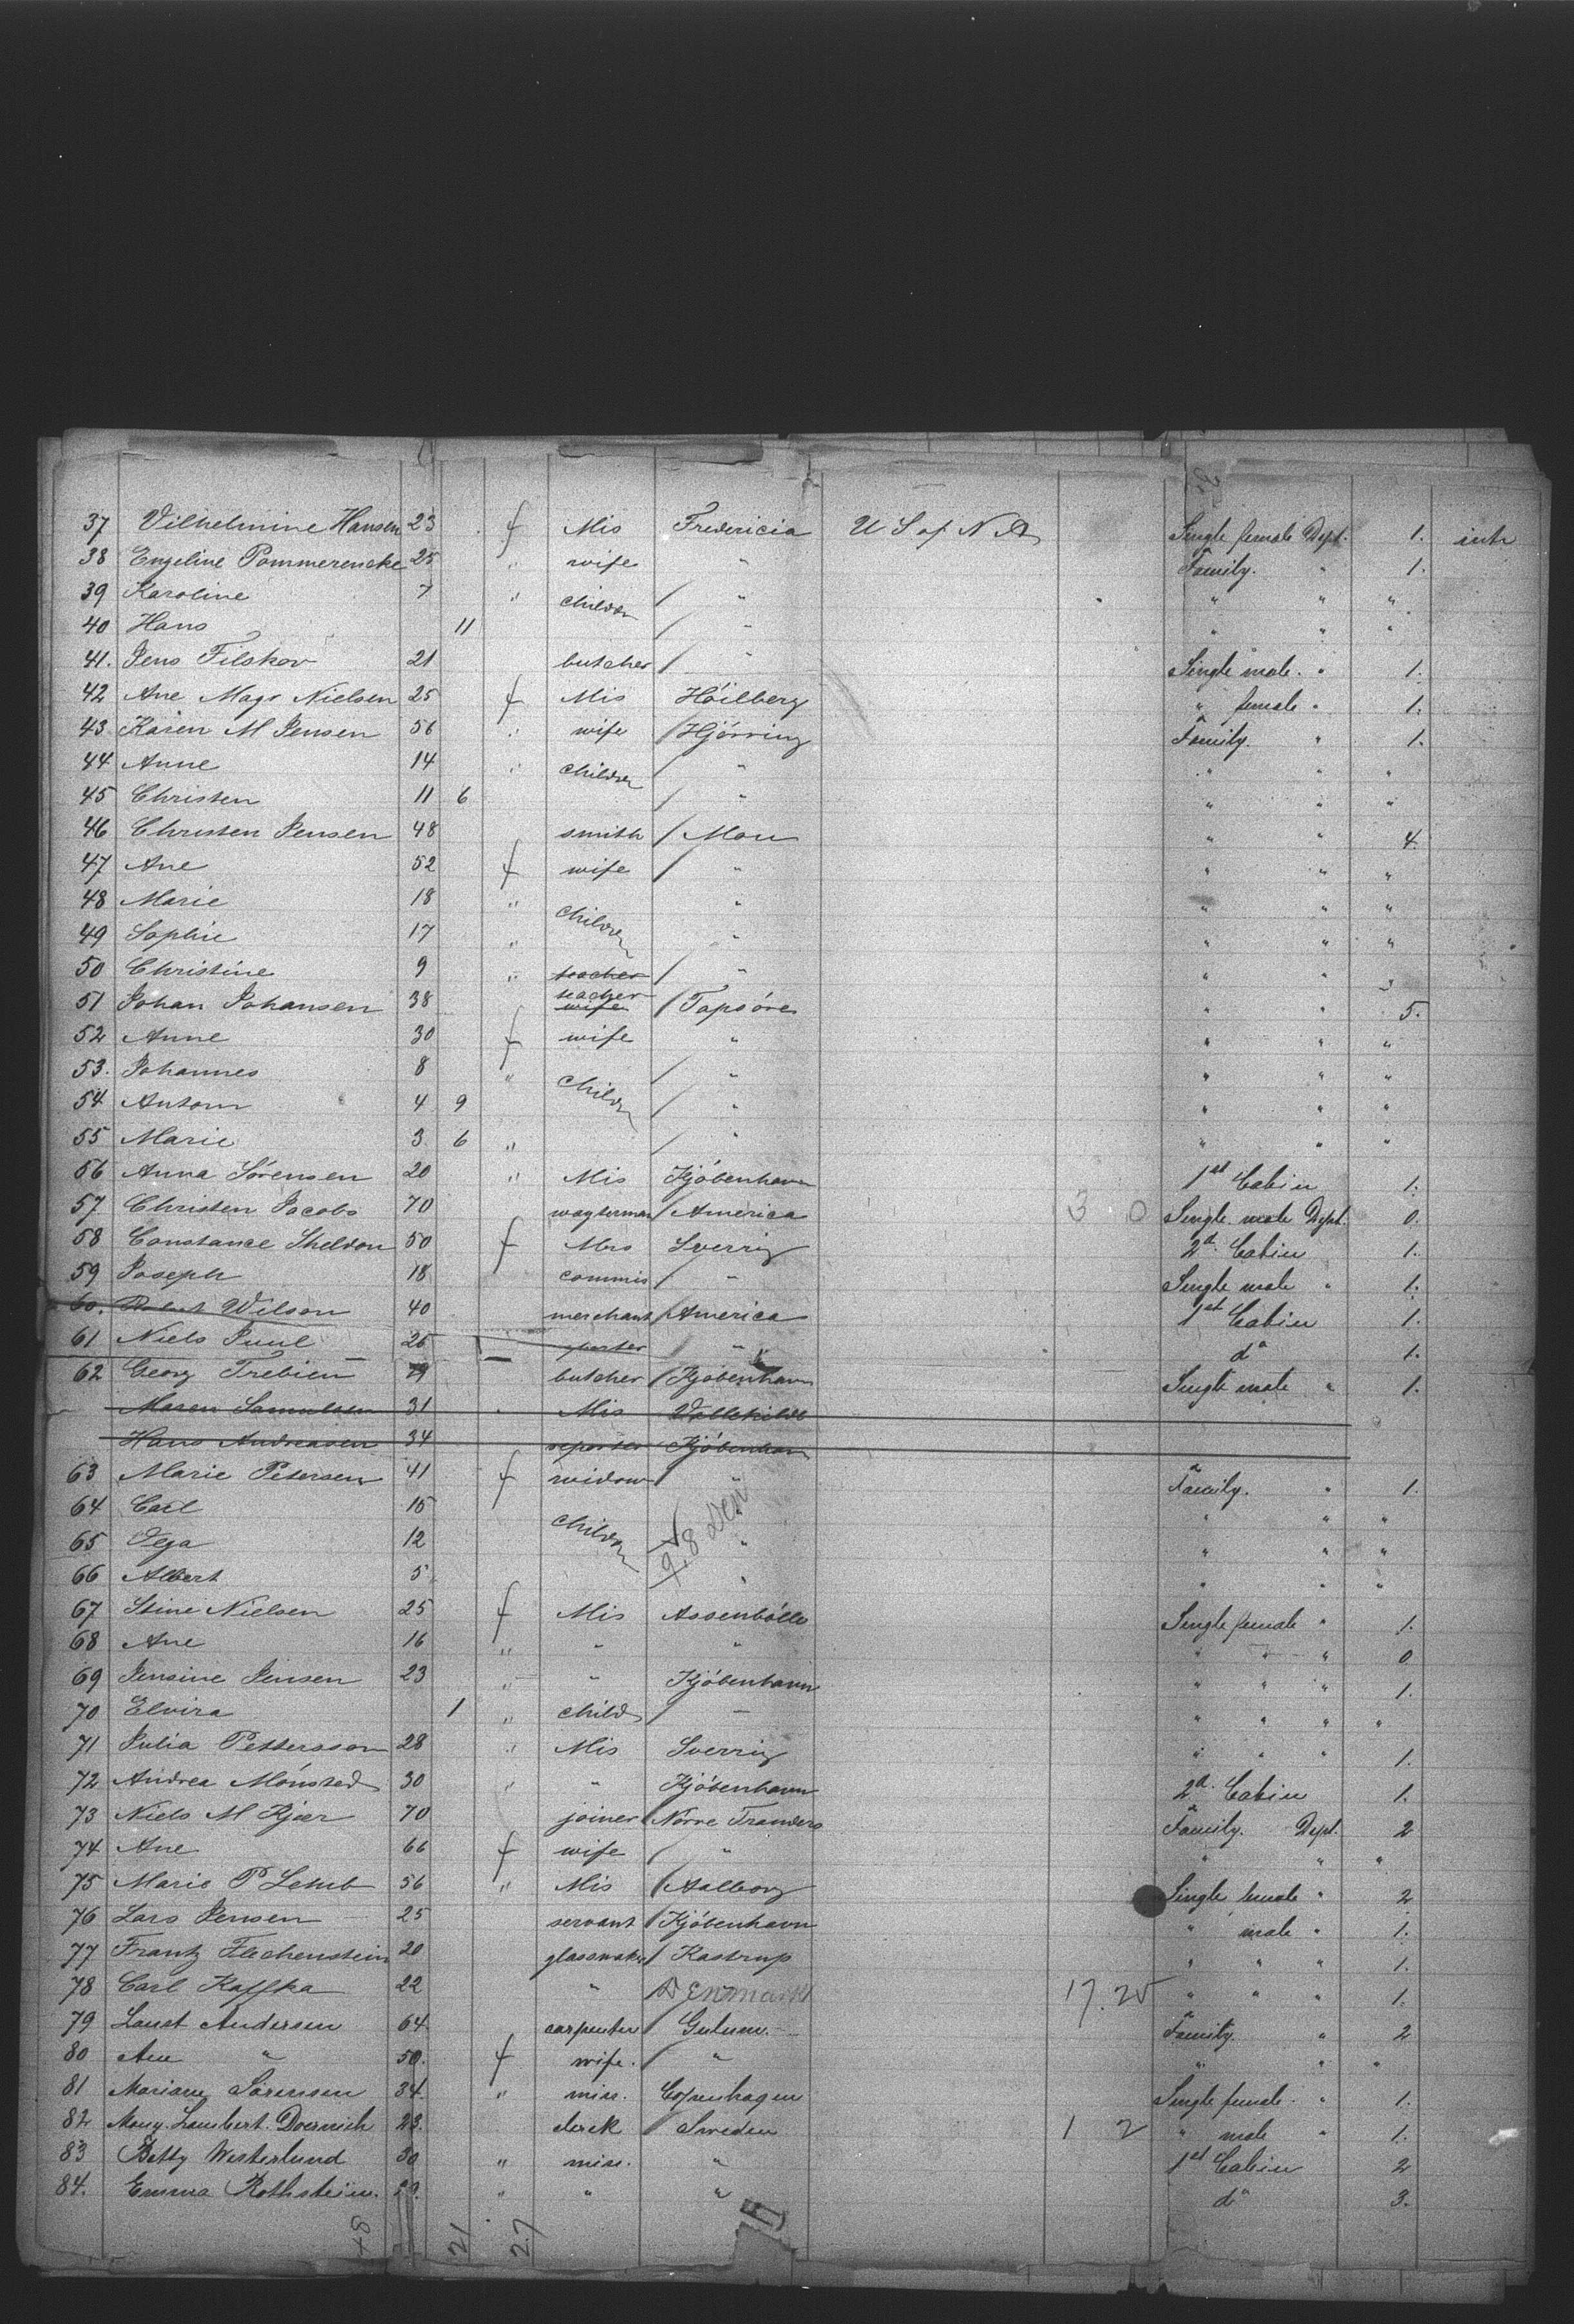 37 Vilhelmine Hansen 23 f Mis Fredericia U S of N A Single female Dept. 1. inh
38 Engeline Pommerencke 25 " wife " Family. " 1.
39 Karoline 7 " children / " " " "
40 Hans 11 / " " " "
41. Jens Filskov 21 butcher / " Single male. " 1.
42 Ane Magr Nielsen 25 f Mis Höilberg " female " 1.
43. Karen M Jensen 56 " wife / Hjörring Family. " 1.
44 Anne 14 " children / " " " "
45 Christen 11 6 / " " " "
46 Christen Jensen 48 smith / Mou " " 4.
47 Ane 52 f wife / " " " "
48 Marie 18 " children " " " "
49 Sophie 17 " " " " "
50 Christine 9 " teacher / " " "
51 Johan Johansen 38 teacher wife / Tapsöre " " 5.
52 Anne 30 f wife " " " "
53. Johannes 8 " children / " " " "
54 Antom 4 9 / " " " "
55 Marie 3. 6 " / " " " "
56 Anna Sörensen 20 " Mis Kjöbenhavn 1st Cabin 1.
57. Christen Jacobs 70 / America 3 0 Single male Dept. 0.
58 Constance Sheldon 50 f Mrs Sverrig 2d. Cabin 1.
59 Joseph 18 commis / " Single male " 1.
60. Robert Wilson 40 merchant / America 1st Cabin 1.
61 Niels Juul 26 " do 1.
62 Georg Trebien 79 butcher / Kjöbenhavn Single male " 1.
Maren Samuelsen 31 Mis
Hans Andreasen 34 Kjöbenhavn
63 Marie Petersen 41 f widow / " Family. " 1.
64 Carl 15 children " " " "
65 Olga 12 " " " "
66 Albert 5 " " " "
67 Stine Nielsen 25 f Mis Assenbölle Single female " 1.
68 Ane 16 " " " " " " 0
69 Jensine Jensen 23 " " Kjöbenhavn " " " 1.
70 Elvira 1 " child / " " " " "
71 Julia Pettersson 28 " Mis Sverrig " " " 1.
72 Andrea Mönsted 30 " " Kjöbenhavn 2d. Cabin 1.
73 Niels M Kjær 70 joiner / Nörre Tranders Family. Dept. 2
74 Ane 66 f wife / " " " "
75 Marie P 56 " Mis / Aalborg Single female " 2
76 Lars Jensen 25 servant / Kjöbenhavn " male " 1.
77 Frantz Flechenstein 20 glasmaker / Kastrup " " " 1.
78 Carl Kaffka 22 " Denmark 17. 25 " " " 1.
79 Laust Andersen 64. carpenter / Gulum. Family. " 2
80 Ane " 50. f wife. / " " " "
81 Mariane Sörensen 34. " miss. Copenhagen Single female. " 1.
82 Lambert 23. clerk Sweden 1 2 " male " 1.
83 Betty Westerlund 30 " miss. " 1st Cabin 2
84. Emma Rothstein. 29. " " " do 3.
48 21 27